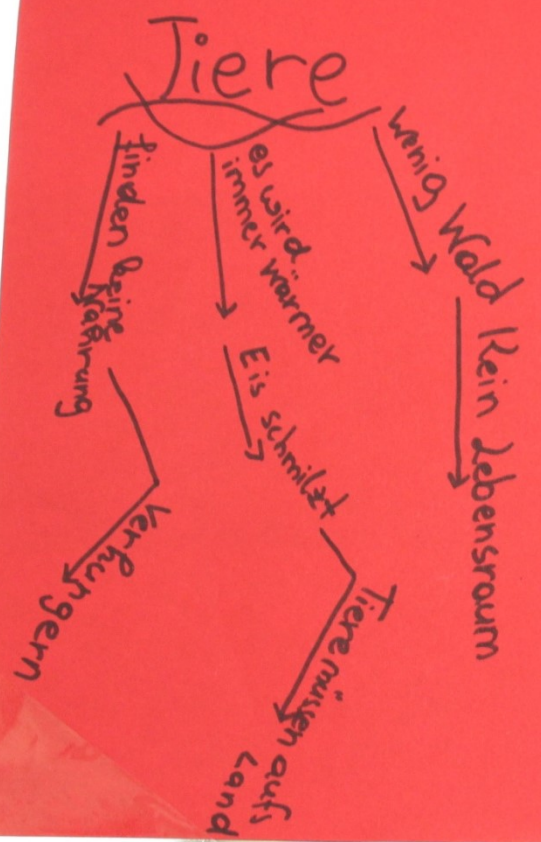 Tiere
finden keine
Nahrung
Verhungern
es wird
immer wärmer
Eis schmilzt
Tiere müssen aufs
Land
wenig Wald
Kein Lebensraum